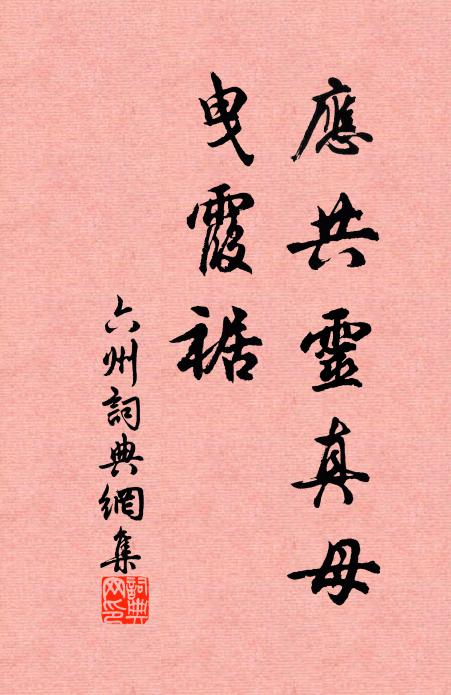 應共靈真母
曳霞裾
六州詞典網集
詞典
网印